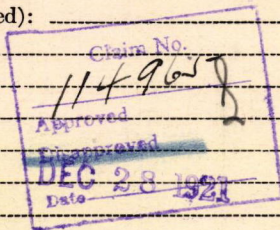 ed):
Claim No.
114965
Approved
Disapproved
DEC 28 1921
Date